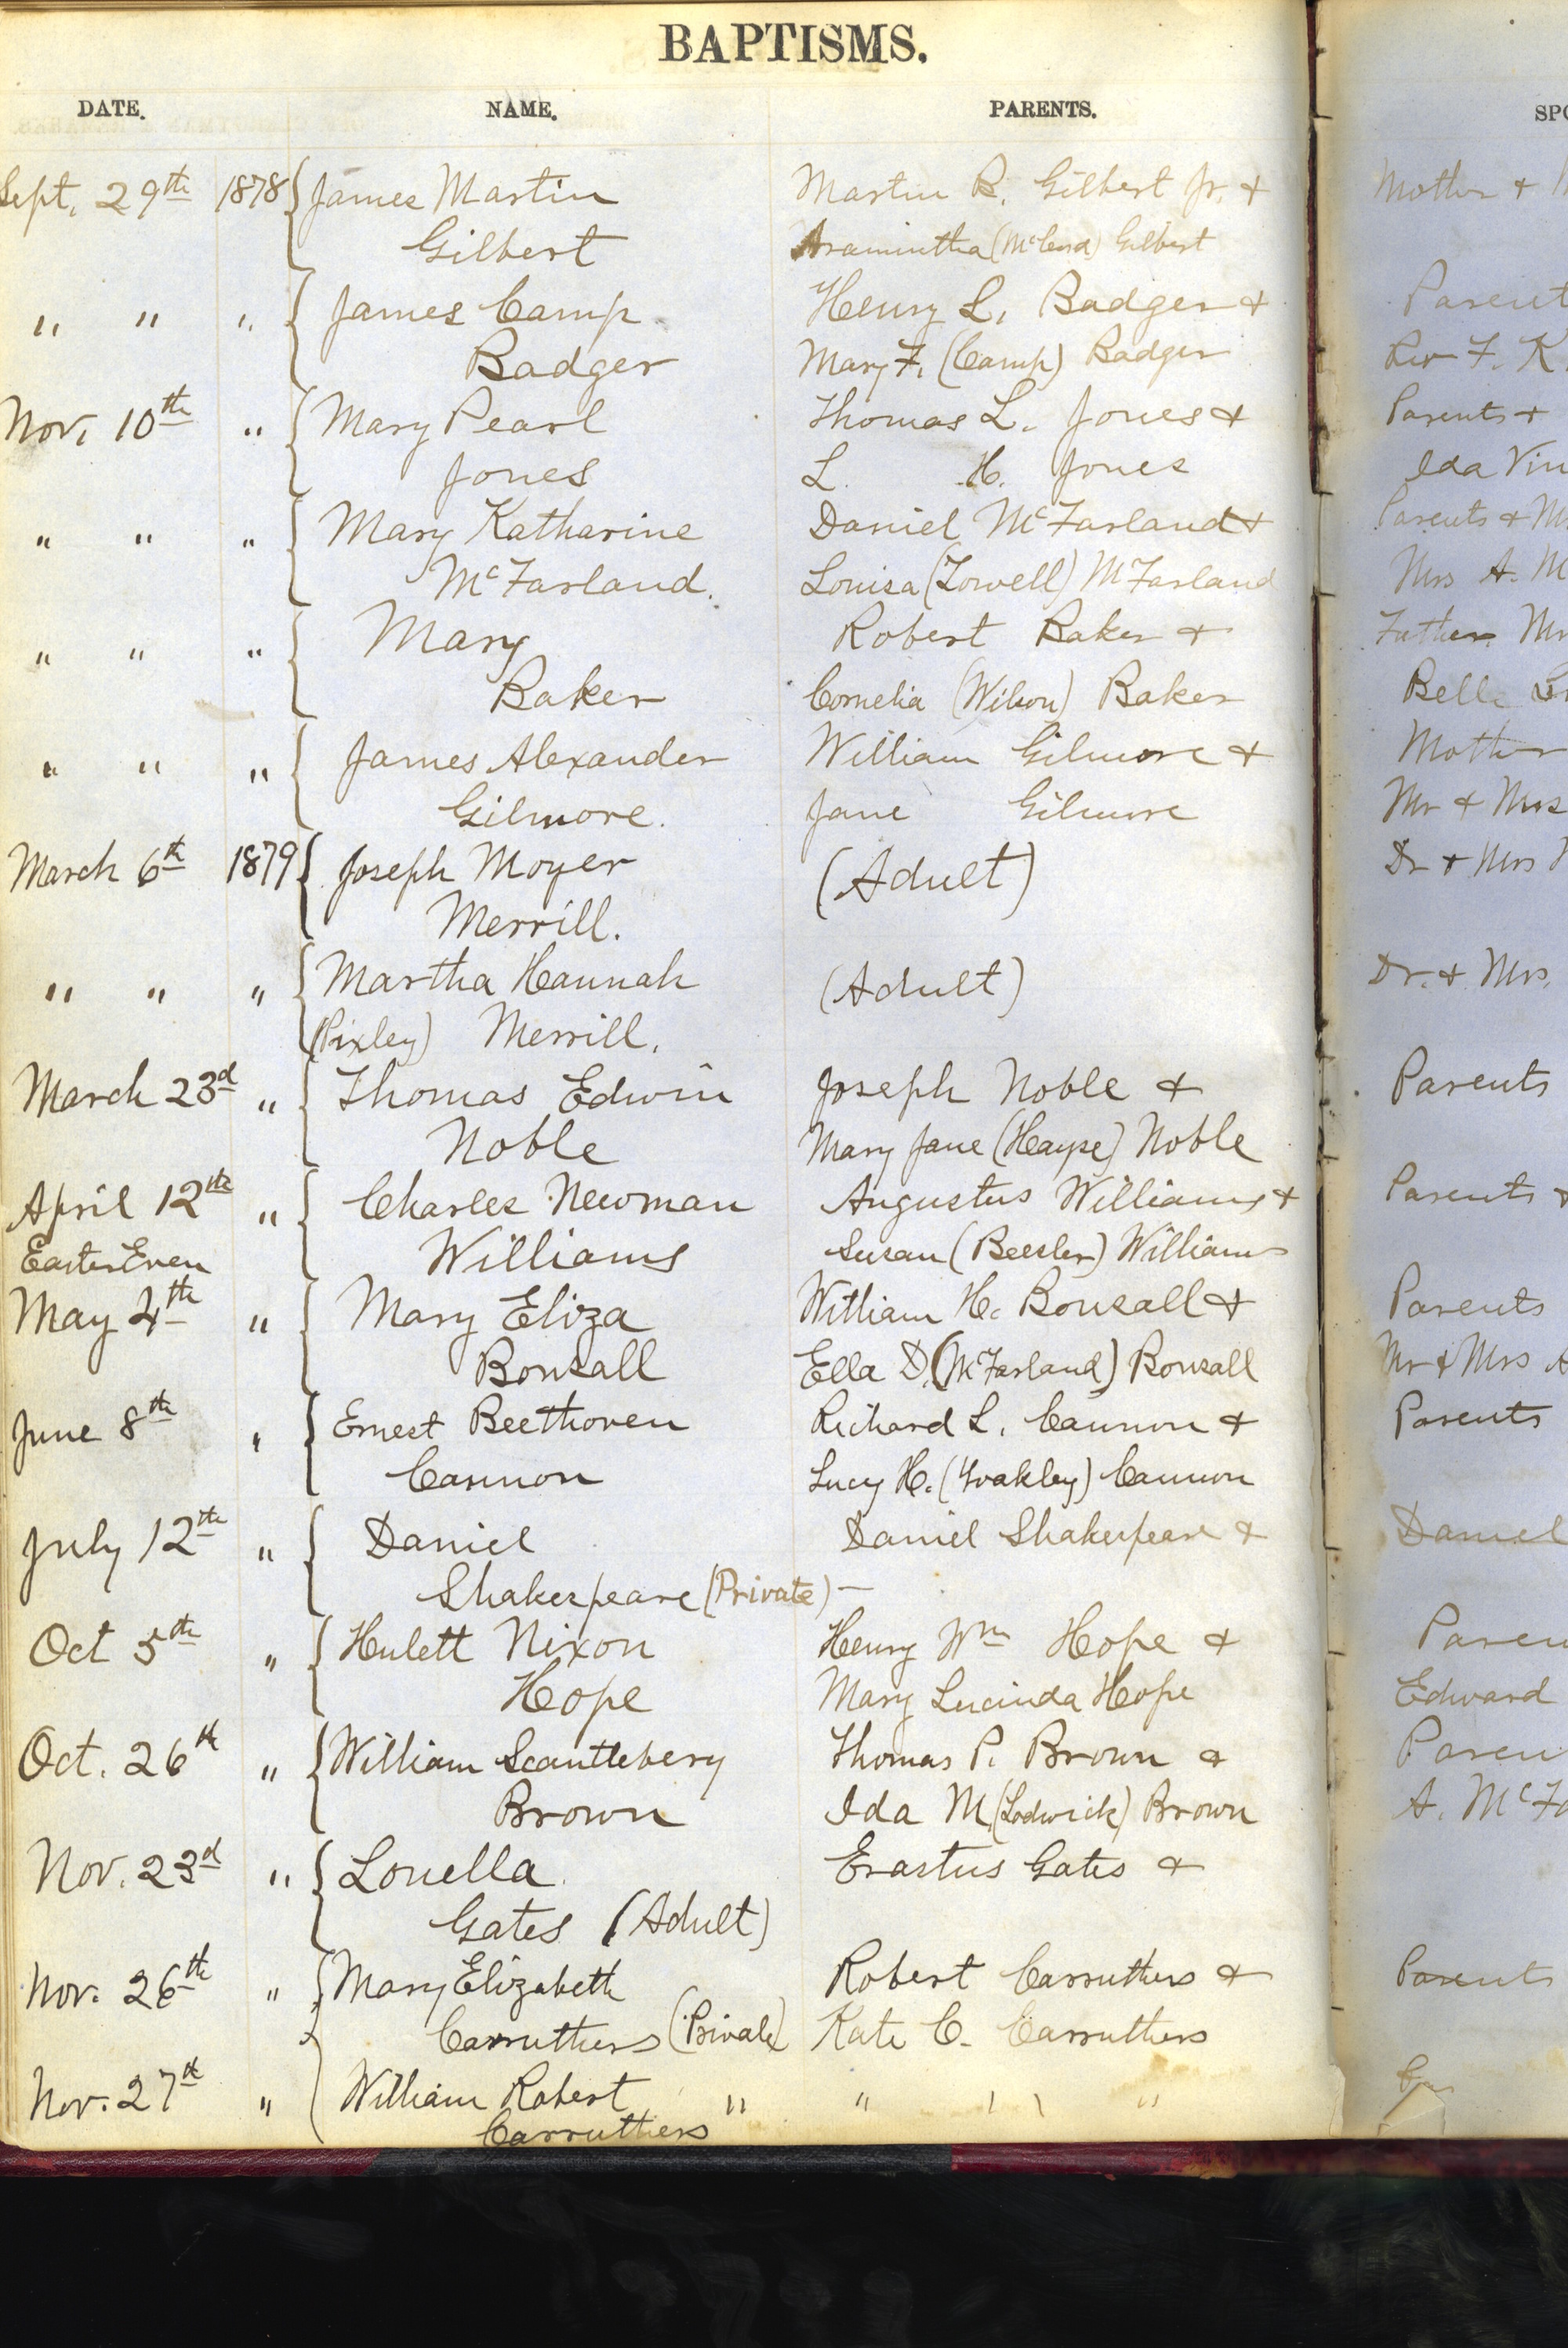 BAPTISMS.
DATE. NAME. PARENTS. SPO
Sept. 29th 1878 { James Martin Martin B. Gilbert Jr. + Mother +
Gilbert Aramintha (McCloud) Gilbert
" " " { James Camp Henry L. Badger + Parent
Badger Mary F. (Camp) Badger Rev F. K.
Nov. 10th " { Mary Pearl Thomas L. Jones + Parents +
Jones L. H. Jones Ida Vin
" " " { Mary Katharine Daniel McFarland + Parents + M
McFarland. Louisa (Towell) McFarland Mrs A. M
" " " { Mary Robert Baker + Father Mr
Baker Cornelia (Wilson) Baker Belle
" " " { James Alexander William Gilmore + Mother
Gilmore. Jane Gilmore Mr + Mrs
March 6th 1879 { Joseph Moyer (Adult) Dr + Mrs
Merrill.
" " " { Martha Hannah (Adult) Dr. + Mrs.
(Pixley) Merrill.
March 23d " { Thomas Edwin Joseph Noble + Parents
Noble Mary Jane (Hayse) Noble
April 12th " { Charles Newman Augustus Williams + Parents +
Easter Even Williams Susan (Beesler) Williams
May 4th " { Mary Eliza William H. Bonsall + Parents
Bonsall Ella D. (McFarland) Bonsall Mr + Mrs A
June 8th " { Ernest Beethoven Richard L. Cannon + Parents
Cannon Lucy H. (Yoakley) Cannon
July 12th " { Daniel Daniel Shakespeare + Daniel
Shakespeare (Private) —
Oct 5th " { Hulett Nixon Henry Wm Hope + Paren
Hope Mary Lucinda Hope Edward
Oct. 26th " { William Scantlebery Thomas P. Brown + Paren
Brown Ida M. (Lodwick) Brown A. McFa
Nov. 23d " { Louella Erastus Gates +
Gates (Adult)
Nov. 26th " { Mary Elizabeth Robert Carruthers + Parents
Carruthers (Private) Kate C. Carruthers
Nov. 27th " { William Robert " " " "
Carruthers